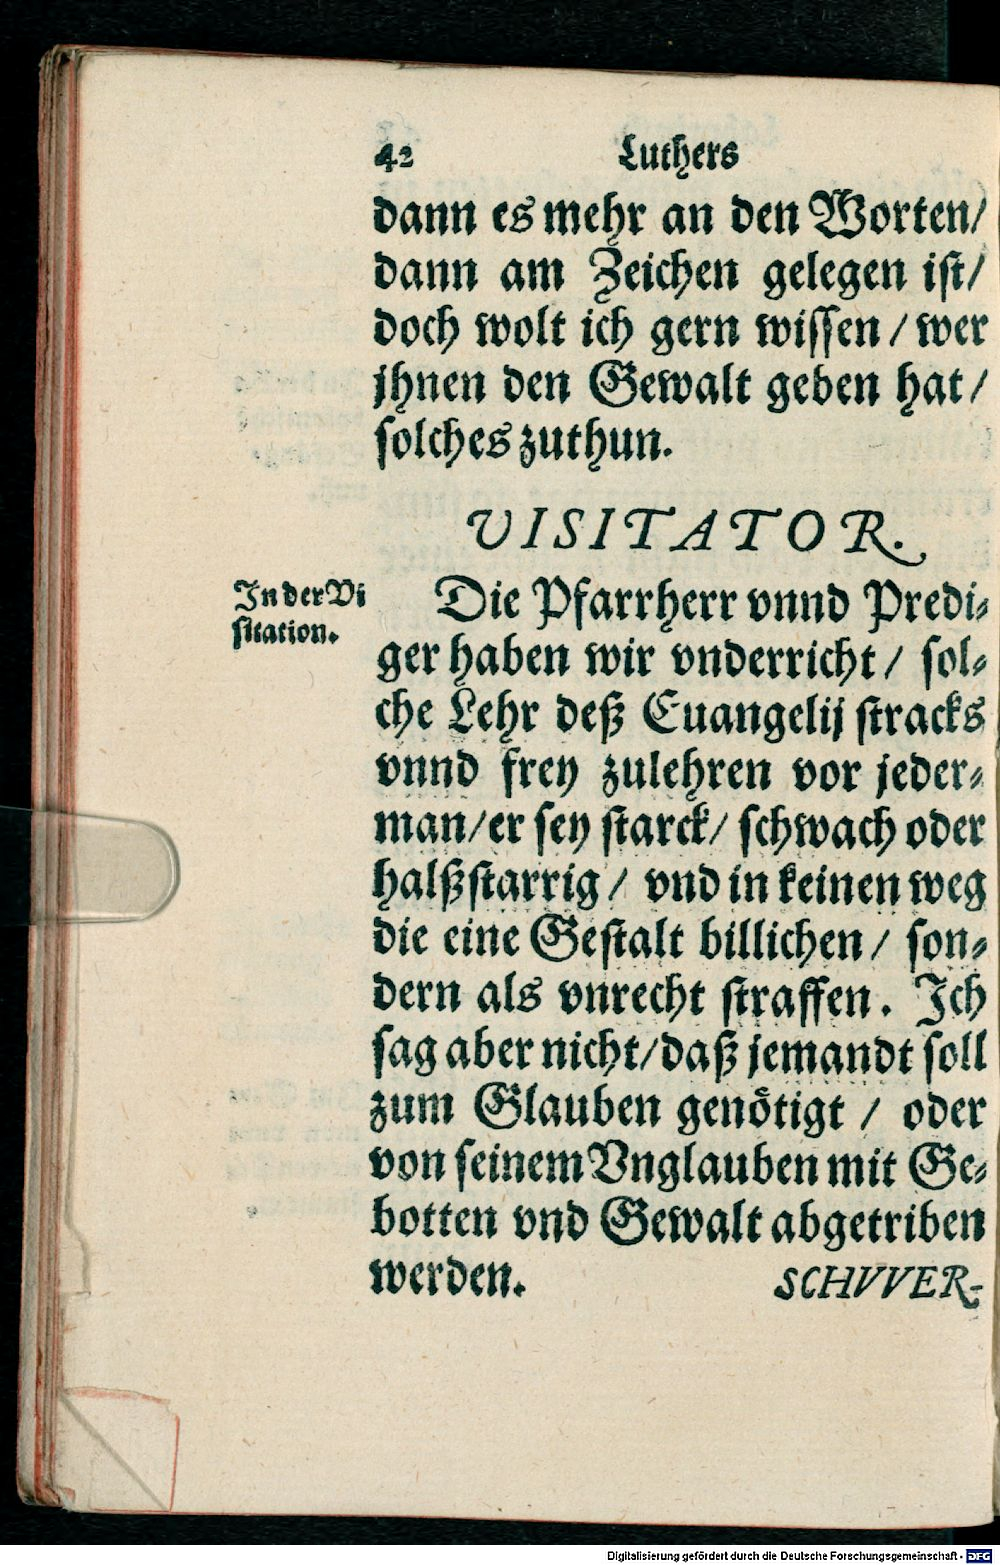 42 Luthers
dann es mehr an den Worten/
dann am Zeichen gelegen ist/
doch wolt ich gern wissen / wer
jhnen den Gewalt geben hat/
solches zuthun.
VISITATOR.
In der Vi
sitation.
Die Pfarrherr vnnd Predi-
ger haben wir vnderricht / sol-
che Lehr deß Euangelij stracks
vnnd frey zulehren vor jeder-
man/er sey starck/ schwach oder
halßstarrig / vnd in keinen weg
die eine Gestalt billichen / son-
dern als vnrecht straffen. Ich
sag aber nicht/daß jemandt soll
zum Glauben genötigt / oder
von seinem Vnglauben mit Ge-
botten vnd Gewalt abgetriben
werden. SCHVVER-
Digitalisierung gefördert durch die Deutsche Forschungsgemeinschaft - DFG